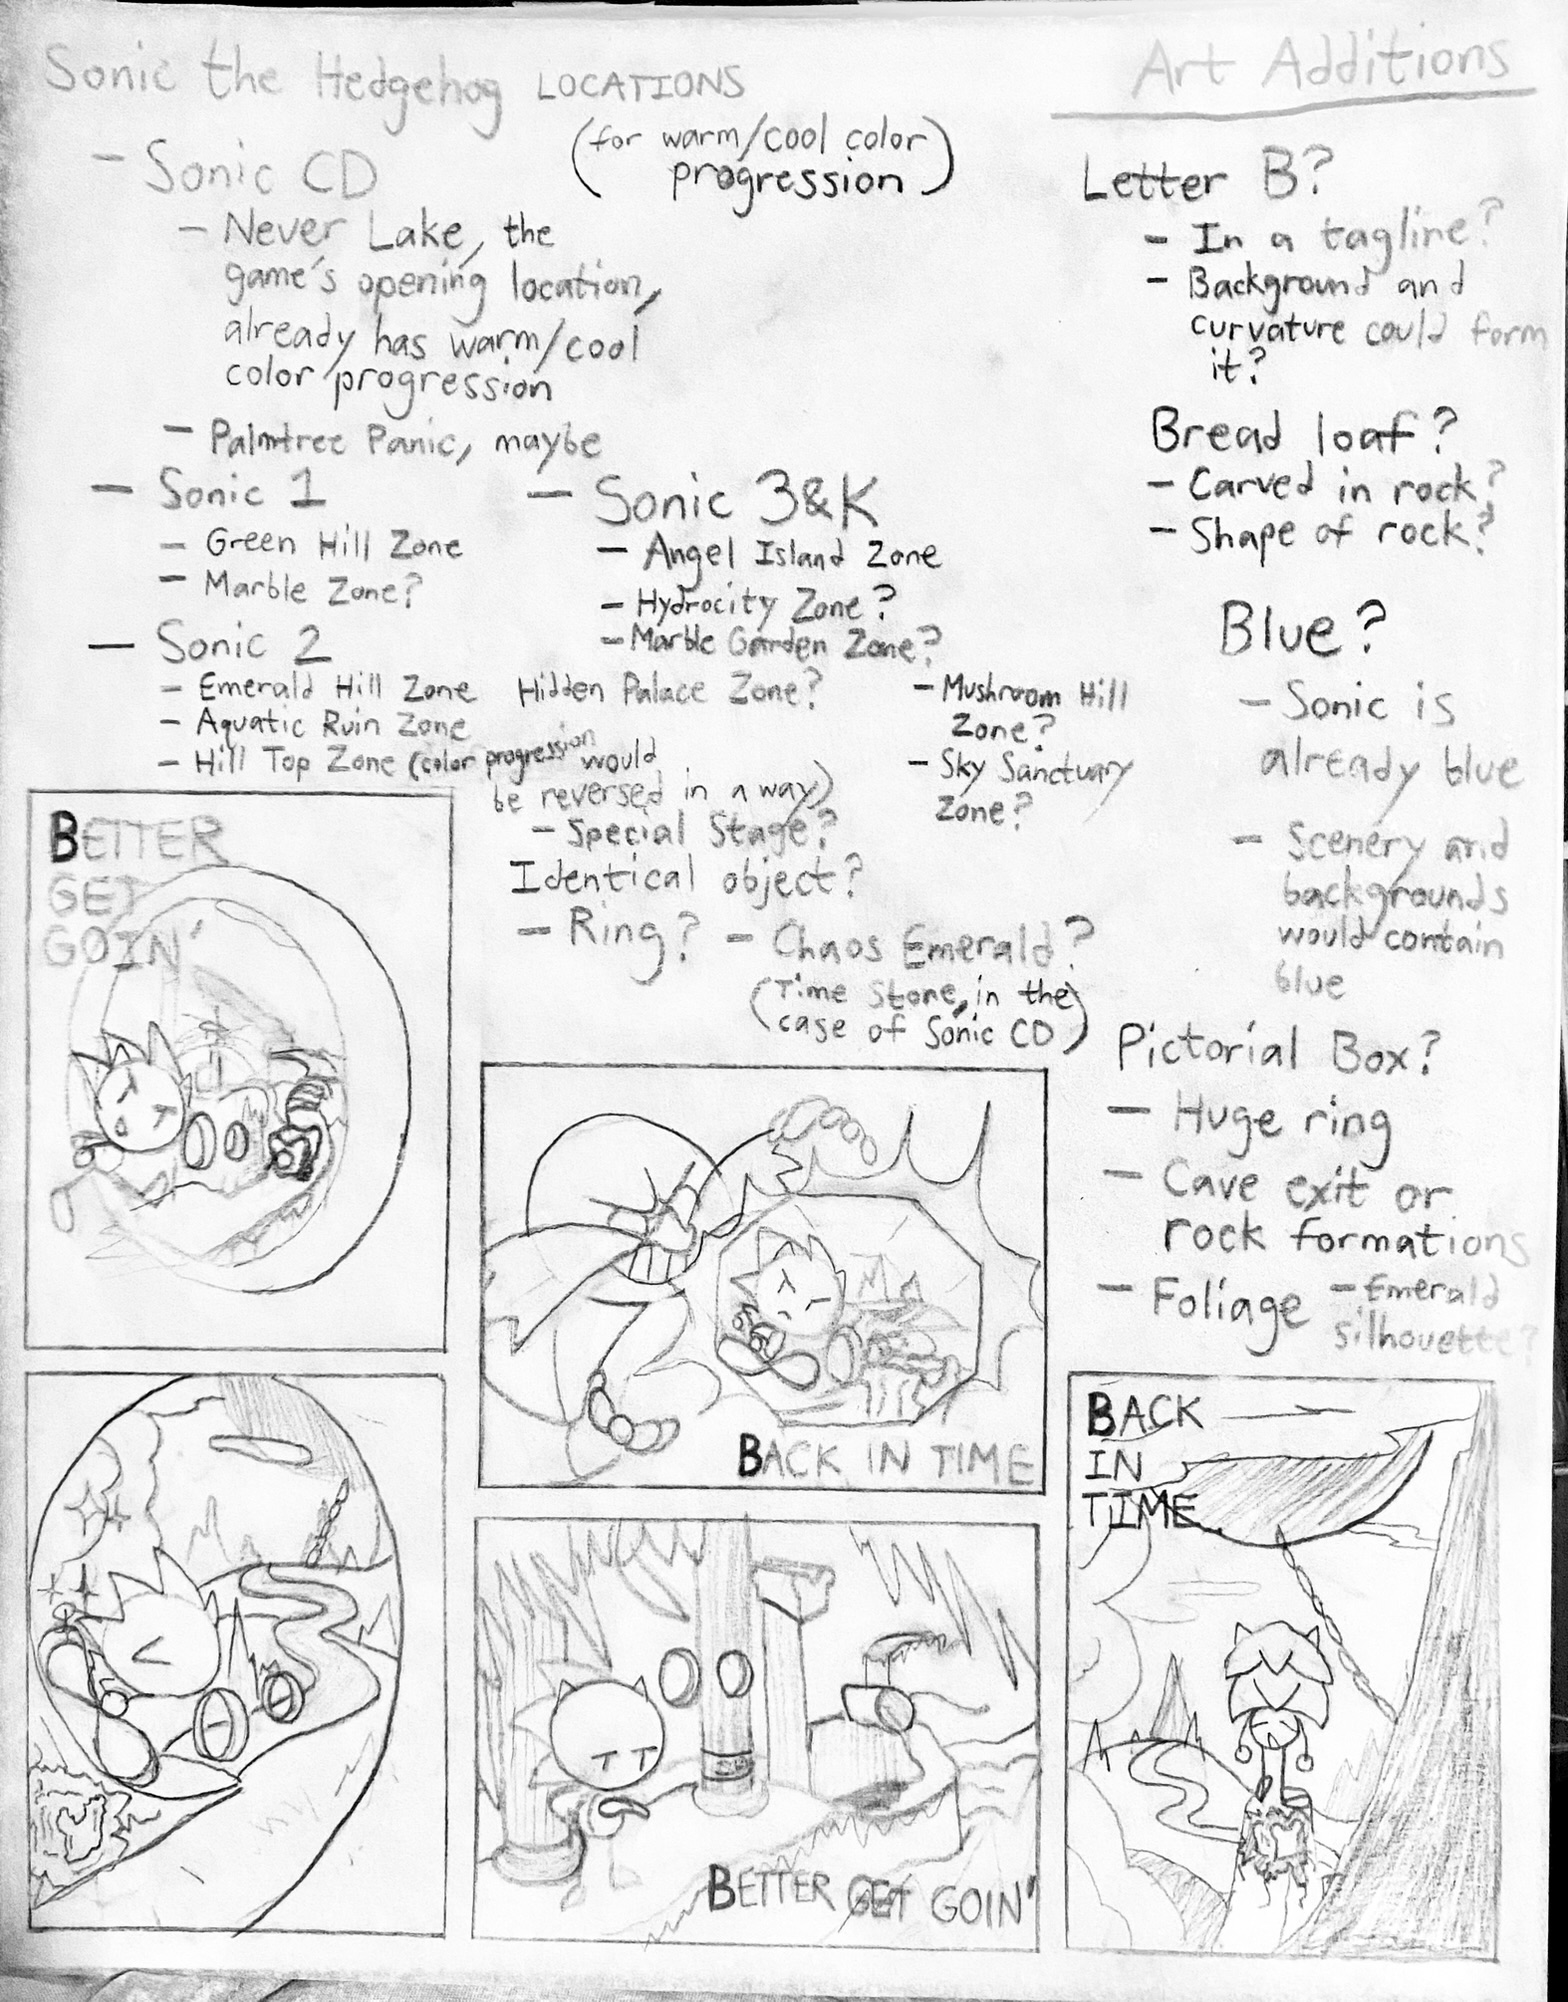 Sonic the Hedgehog LOCATIONS
(for warm/cool color
progression)
- Sonic CD
- Never Lake, the
game's opening location,
already has warm/cool
color progression
- Palmtree Panic, maybe
- Sonic 1
- Green Hill Zone
- Marble Zone?
- Sonic 2
- Emerald Hill Zone
- Aquatic Ruin Zone
- Hill Top Zone (color progression would
be reversed in a way)
Hidden Palace Zone?
- Sonic 3&K
- Angel Island Zone
- Hydrocity Zone?
- Marble Garden Zone?
- Mushroom Hill
Zone?
- Sky Sanctuary
Zone?
- Special Stage?
Identical object?
- Ring?
- Chaos Emerald?
(Time Stone, in the
case of Sonic CD)
Art Additions
Letter B?
- In a tagline?
- Background and
curvature could form
it?
Bread loaf?
- Carved in rock?
- Shape of rock?
Blue?
- Sonic is
already blue
- Scenery and
backgrounds
would contain
blue
Pictorial Box?
- Huge ring
- Cave exit or
rock formations
- Foliage
- Emerald
silhouette?
BETTER
GET
GOIN'
BACK IN TIME
BETTER GET GOIN'
BACK
IN
TIME